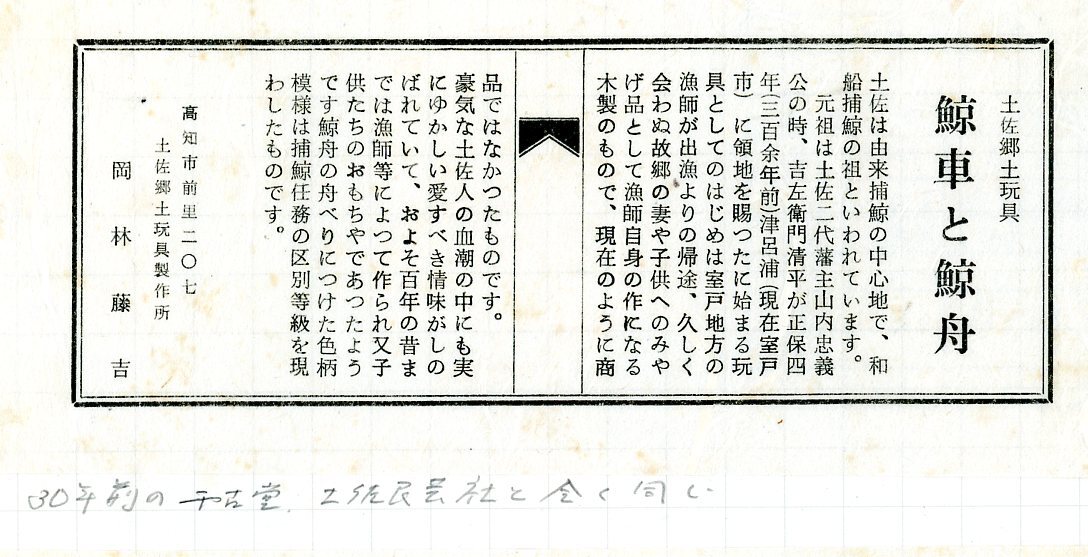 土佐郷土玩具
鯨車と鯨舟
土佐は由来捕鯨の中心地で、和
船捕鯨の祖といわれています。
元祖は土佐二代藩主山内忠義
公の時、吉左衛門清平が正保四
年(三百余年前)津呂浦(現在室戸
市)に領地を賜つたに始まる玩
具としてのはじめは室戸地方の
漁師が出漁よりの帰途、久しく
会わぬ故郷の妻や子供へのみや
げ品として漁師自身の作になる
木製のもので、現在のように商
品ではなかつたものです。
豪気な土佐人の血潮の中にも実
にゆかしい愛すべき情味がしの
ばれていて、およそ百年の昔ま
では漁師等によつて作られ又子
供たちのおもちやであつたよう
です鯨舟の舟べりにつけた色柄
模様は捕鯨任務の区別等級を現
わしたものです。
高知市前里二〇七
土佐郷土玩具製作所
岡林藤吉
30年前の 土佐民芸社と全く同じ